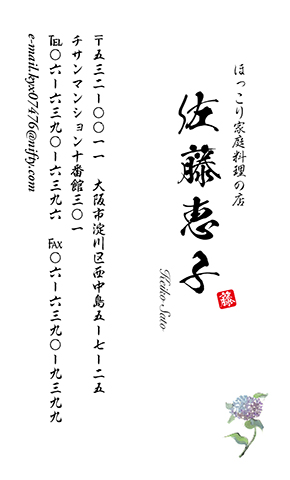 ほっこり家庭料理の店
佐藤恵子
Keiko Sato
〒五三二ー〇〇一一　大阪市淀川区西中島五ー七ー二五
チサンマンション十番館三〇一
TEL〇六ー六三九〇ー六三九六　FAX〇六ー六三九九ー九三九九
e-mail.kyx07476@nifty.com